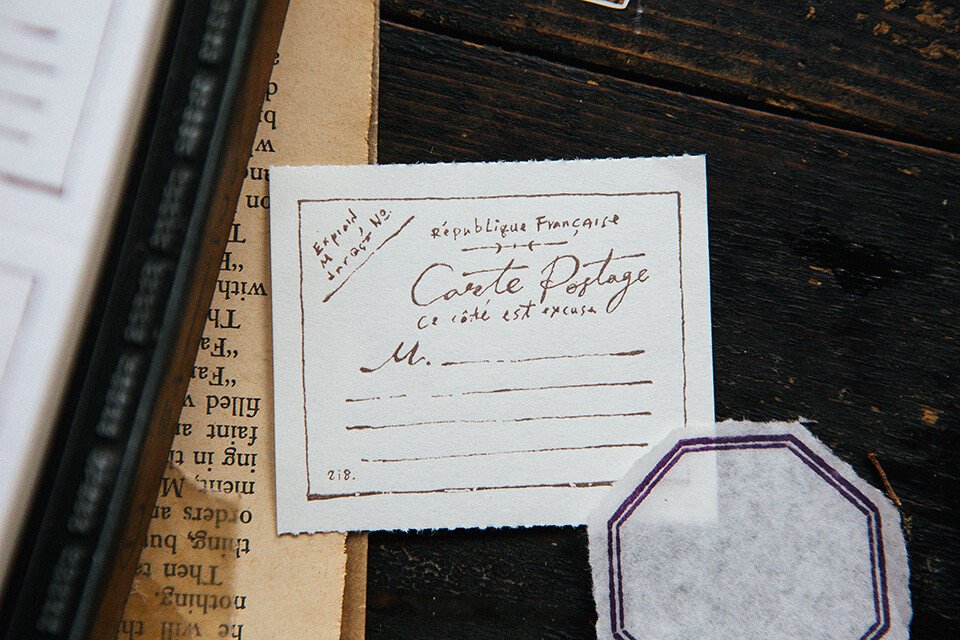 République Française
Carte Postage
Ce côté est excusa
M.
218.
"F
with
Th
"Fa
"Far
filled
faint ar
ing in th
ment, M
orders ar
thing, bu
Then tak
nothing.
he will th